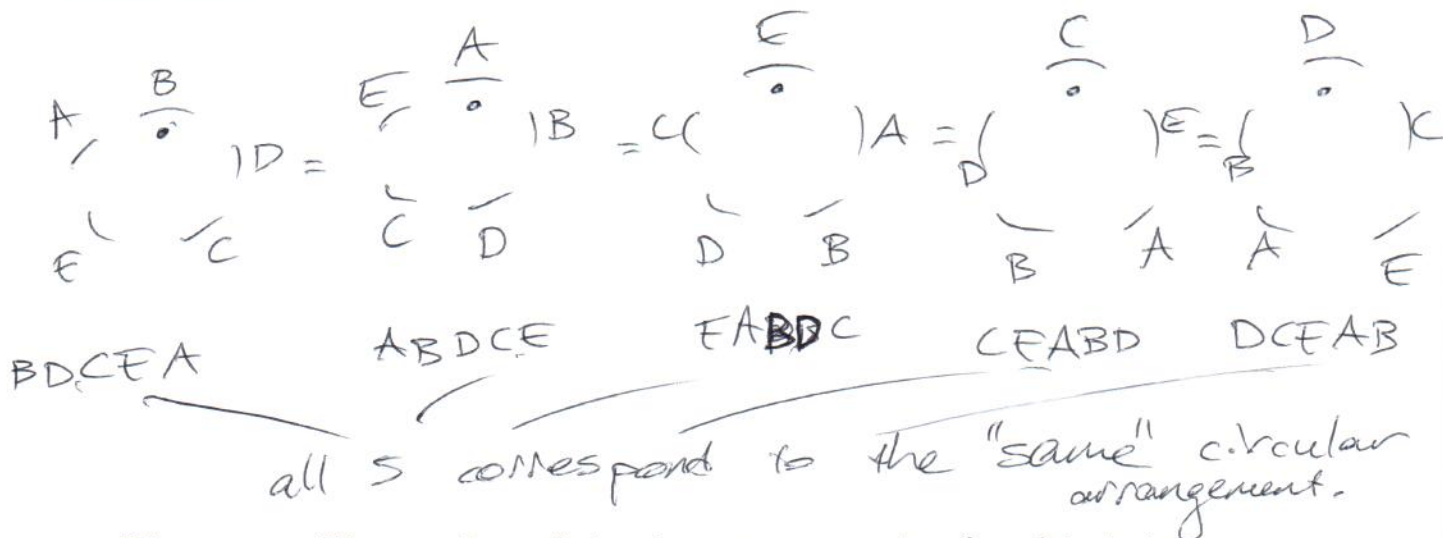 B
A
)D =
E
C
A
E
)B =
C
D
E
C(
)A =
D
B
C
D(
)E =
B
A
D
B(
)C
A
E
BDCEA ABDCE EABDC CEABD DCEAB
all 5 correspond to the "same" circular
arrangement.